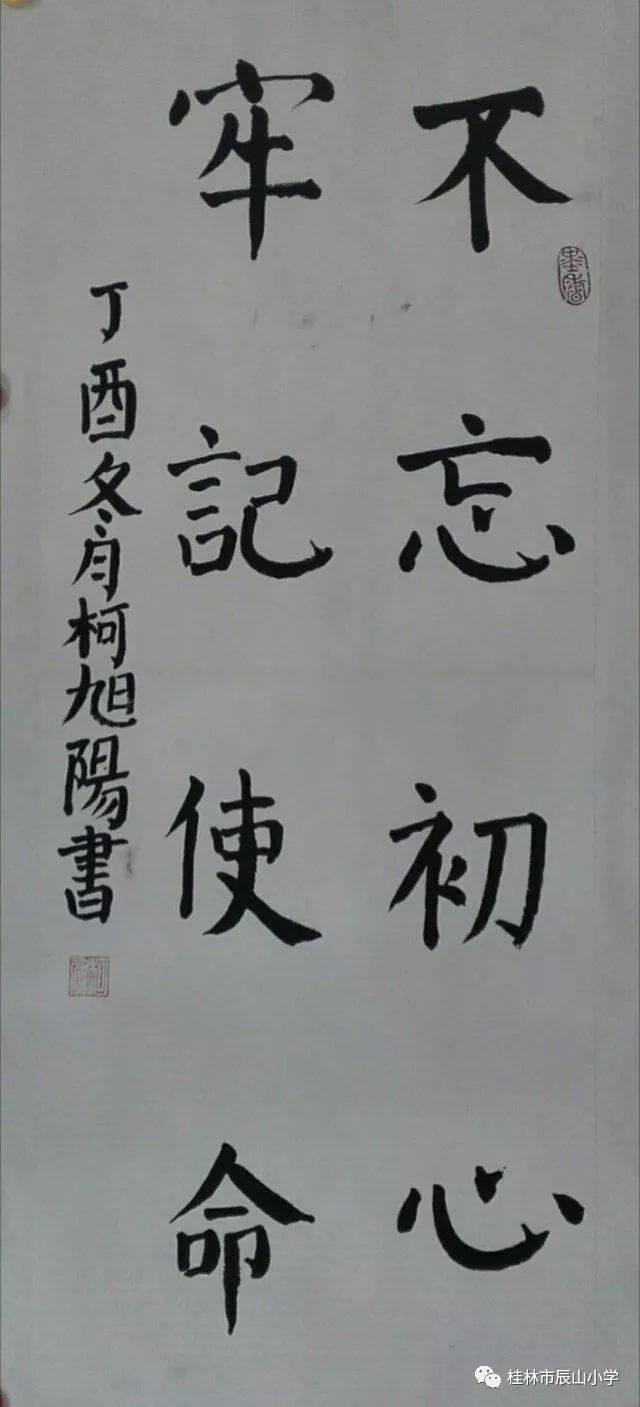 不忘初心
牢記使命
丁酉冬月柯旭陽書
墨香
桂林市辰山小学